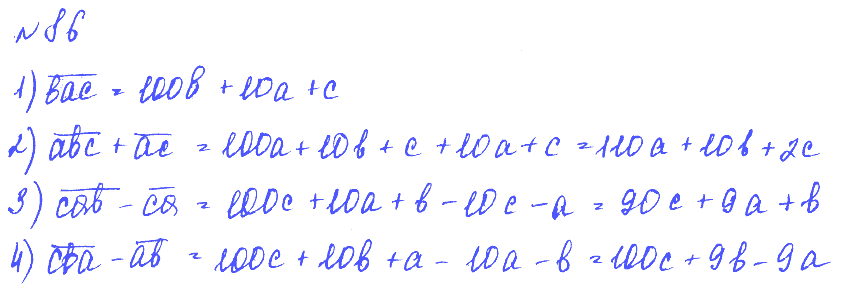 №86
1) b̅a̅c̅ = 100b + 10a + c
2) a̅b̅c̅ + a̅c̅ = 100a + 10b + c + 10a + c = 110a + 10b + 2c
3) c̅a̅b̅ - c̅a̅ = 100c + 10a + b - 10c - a = 90c + 9a + b
4) c̅b̅a̅ - a̅b̅ = 100c + 10b + a - 10a - b = 100c + 9b - 9a